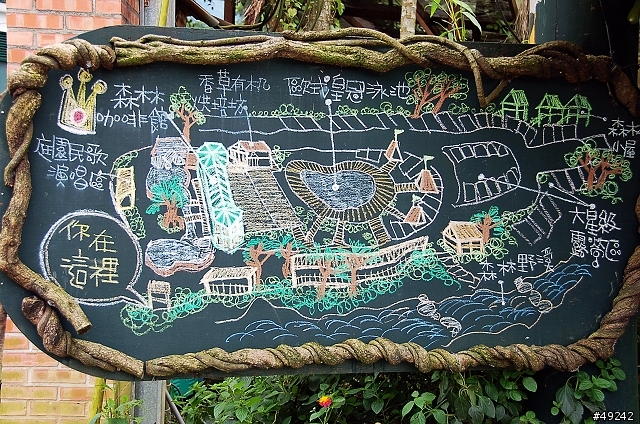 香草有机
烘培坊
歐式皇冠泳池
森林
咖啡館
庭園民歌
演唱區
你在
這裡
森林
小屋
大星級
露營區
森林野溪
#49242